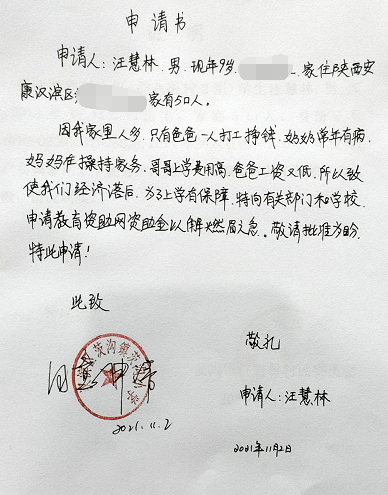 申请书
申请人：汪慧林，男，现年9岁，家住陕西安
康汉滨区 家有5口人。
因我家里人多，只有爸爸一人打工挣钱，妈妈常年有病，
妈妈在操持家务，哥哥上学费用高，爸爸工资又低，所以致
使我们经济落后，为了上学有保障，特向有关部门和学校，
申请教育资助网资助金以解燃眉之急。敬请批准为盼，
特此申请！
此致
敬礼
茨沟镇茨
2021.11.2
申请人：汪慧林
2021年11月2日